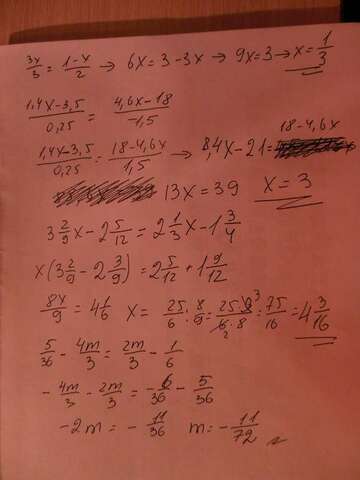 3x/3 = 1-x/2 → 6x = 3-3x → 9x=3 → x = 1/3
1,4x-3,5/0,25 = 4,6x-18/-1,5
1,4x-3,5/0,25 = 18-4,6x/1,5 → 8,4x-21= 18-4,6x
13x = 39 x = 3
3 2/9 x - 2 5/12 = 2 1/3 x - 1 3/4
x(3 2/9 - 2 3/9) = 2 5/12 + 1 9/12
8x/9 = 4 1/6 x = 25/6 : 8/9 = 25·9³/6₂·8 = 75/16 = 4 3/16
5/36 - 4m/3 = 2m/3 - 1/6
- 4m/3 - 2m/3 = - 6/36 - 5/36
-2m = - 11/36 m = - 11/72